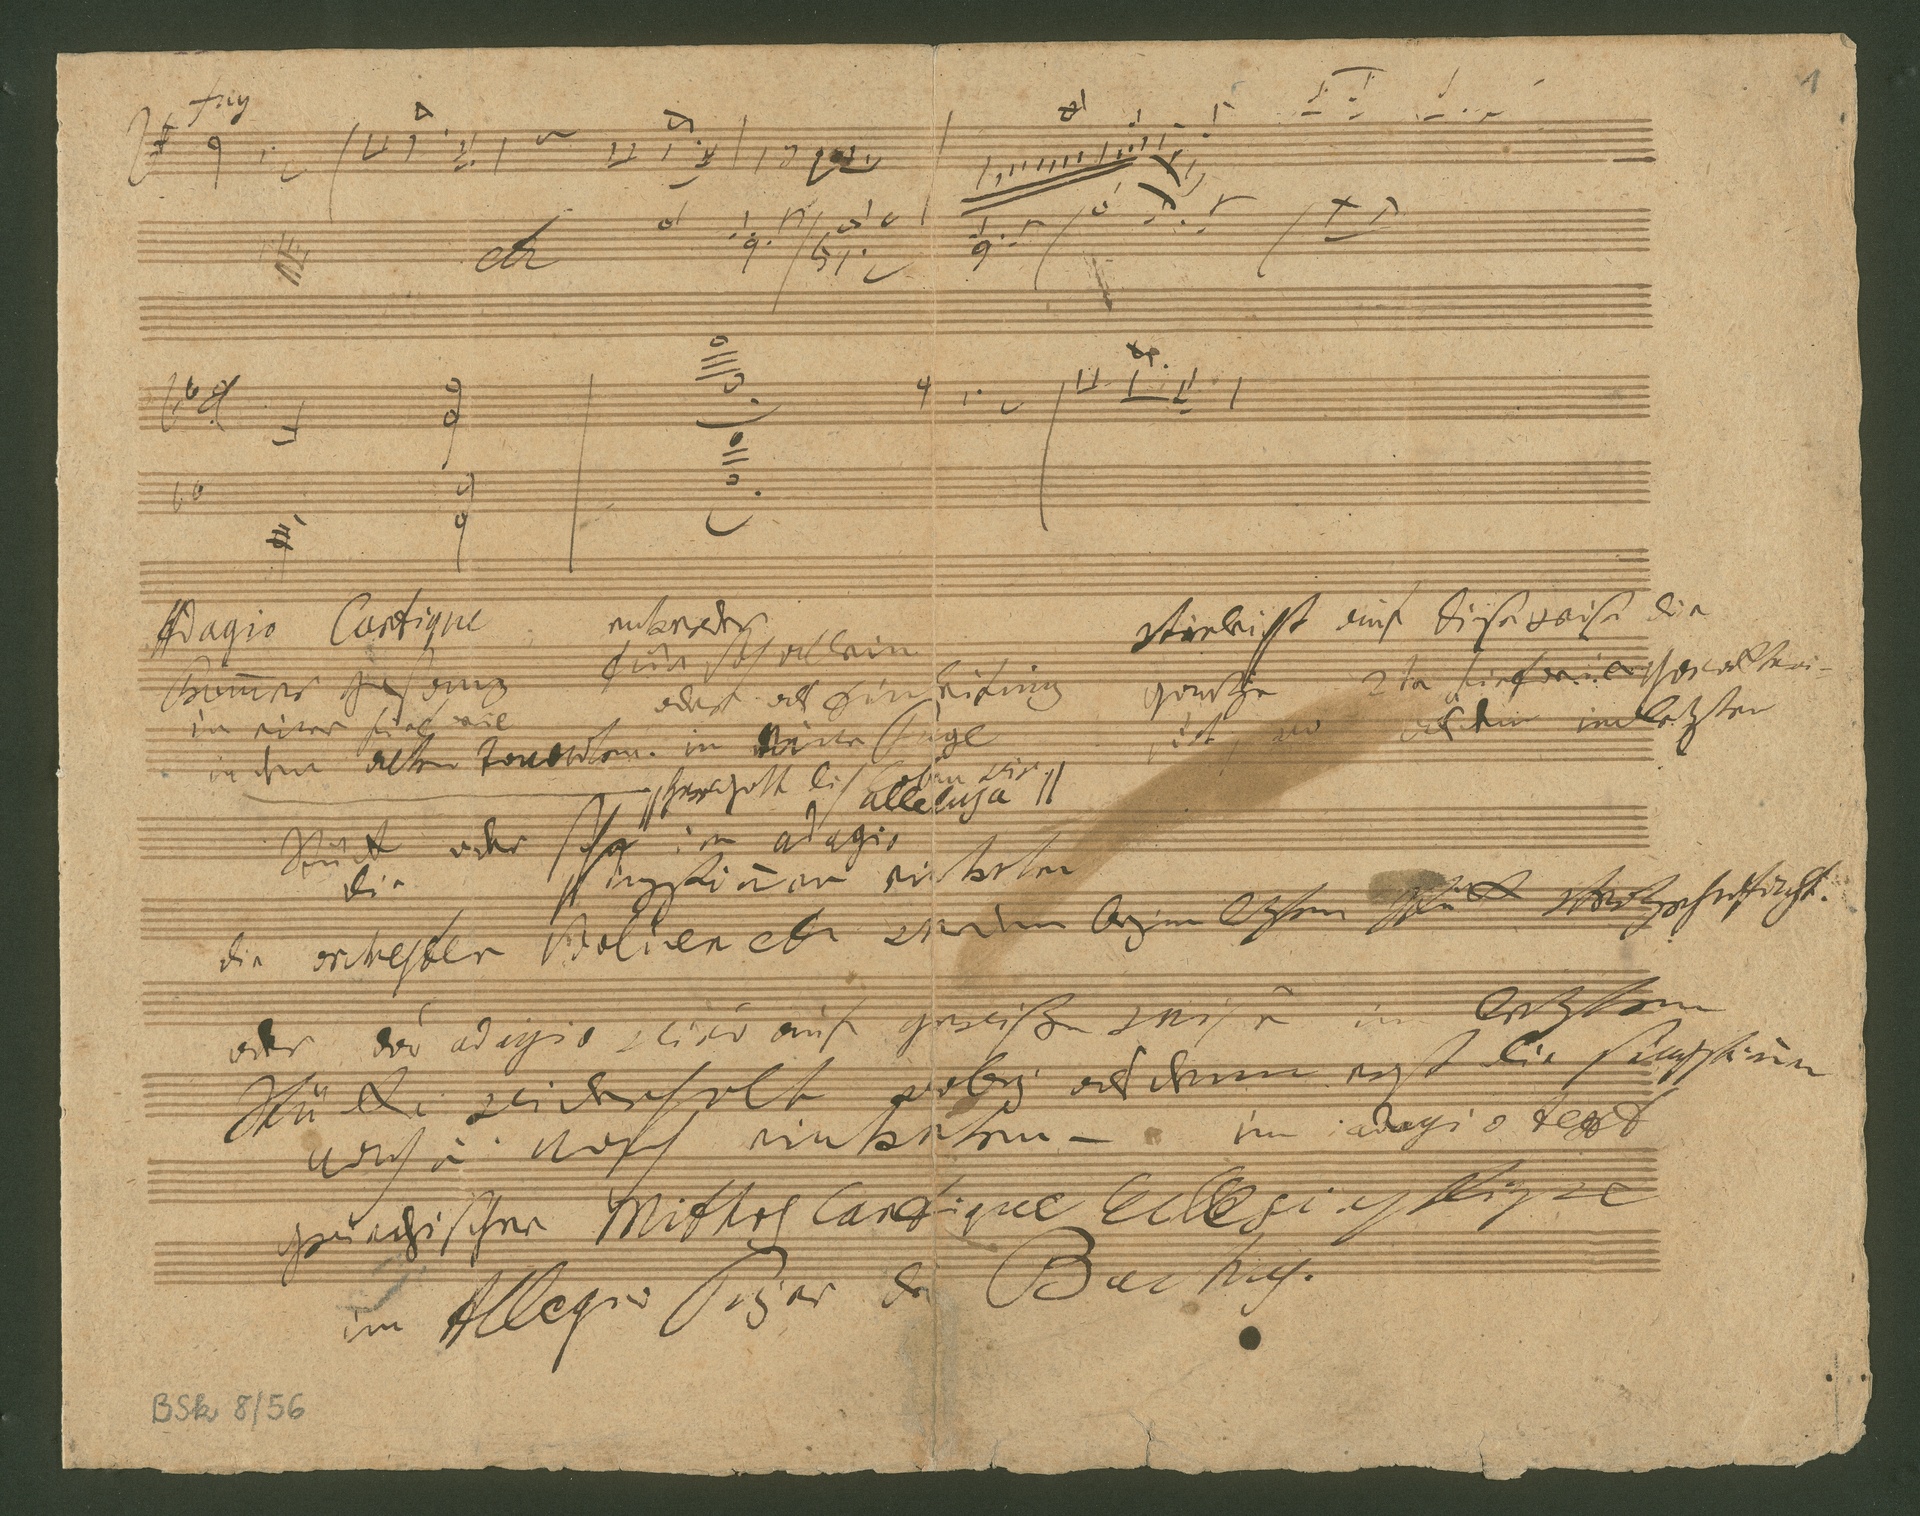 1
fug
etc
Adagio Cantique
frommer Gesang
in einer sinfonie
in den alten Tonarten.
entweder
für sich allein
oder als Einleitung
in eine Fuge
"Herr Gott dich loben wir
alleluja"
vieleicht auf diese weise die
ganze 2te sinfonie charakteri-
sirt, wo alsdenn im letzten
Stück oder schon im adagio
die singstimmen eintreten
die orchester Violinen etc werden beym lezten Stück verzehnfacht.
oder das adagio wird auf gewisse weise im letzten
Stücke wiederholt wobey alsdenn erst die singstimmen
nach u. nach eintreten – im adagio text
griechischer Mithos Cantique Ecclesiastique
im Allegro Feyer des Bachus.
BSk 8/56